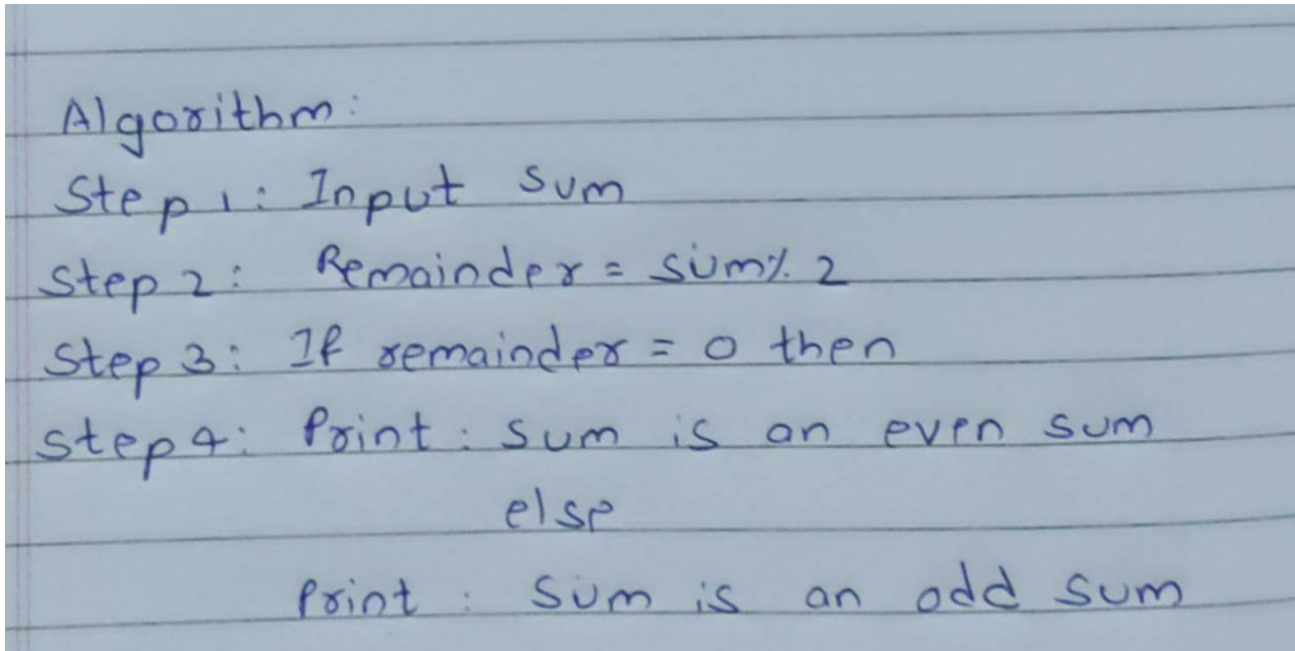 Algorithm:
Step 1: Input sum
Step 2: Remainder = sum% 2
Step 3: If remainder = 0 then
Step 4: Print: sum is an even sum
else
Print : sum is an odd sum